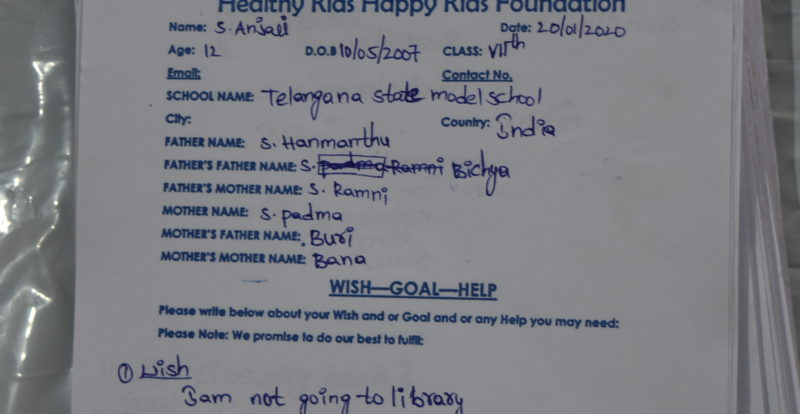 Healthy Kids Happy Kids Foundation
Name: S. Anjali Date: 20/01/2020
Age: 12 D.O.B 10/05/2007 CLASS: VIIth
Email: Contact No.
SCHOOL NAME: Telangana state model school
City: Country: India
FATHER NAME: S. Hanmanthu
FATHER'S FATHER NAME: S. padma Ramni Bichya
FATHER'S MOTHER NAME: S. Ramni
MOTHER NAME: S. padma
MOTHER'S FATHER NAME: Buri
MOTHER'S MOTHER NAME: Bana
WISH—GOAL—HELP
Please write below about your Wish and or Goal and or any Help you may need:
Please Note: We promise to do our best to fulfil:
① Wish
I am not going to library